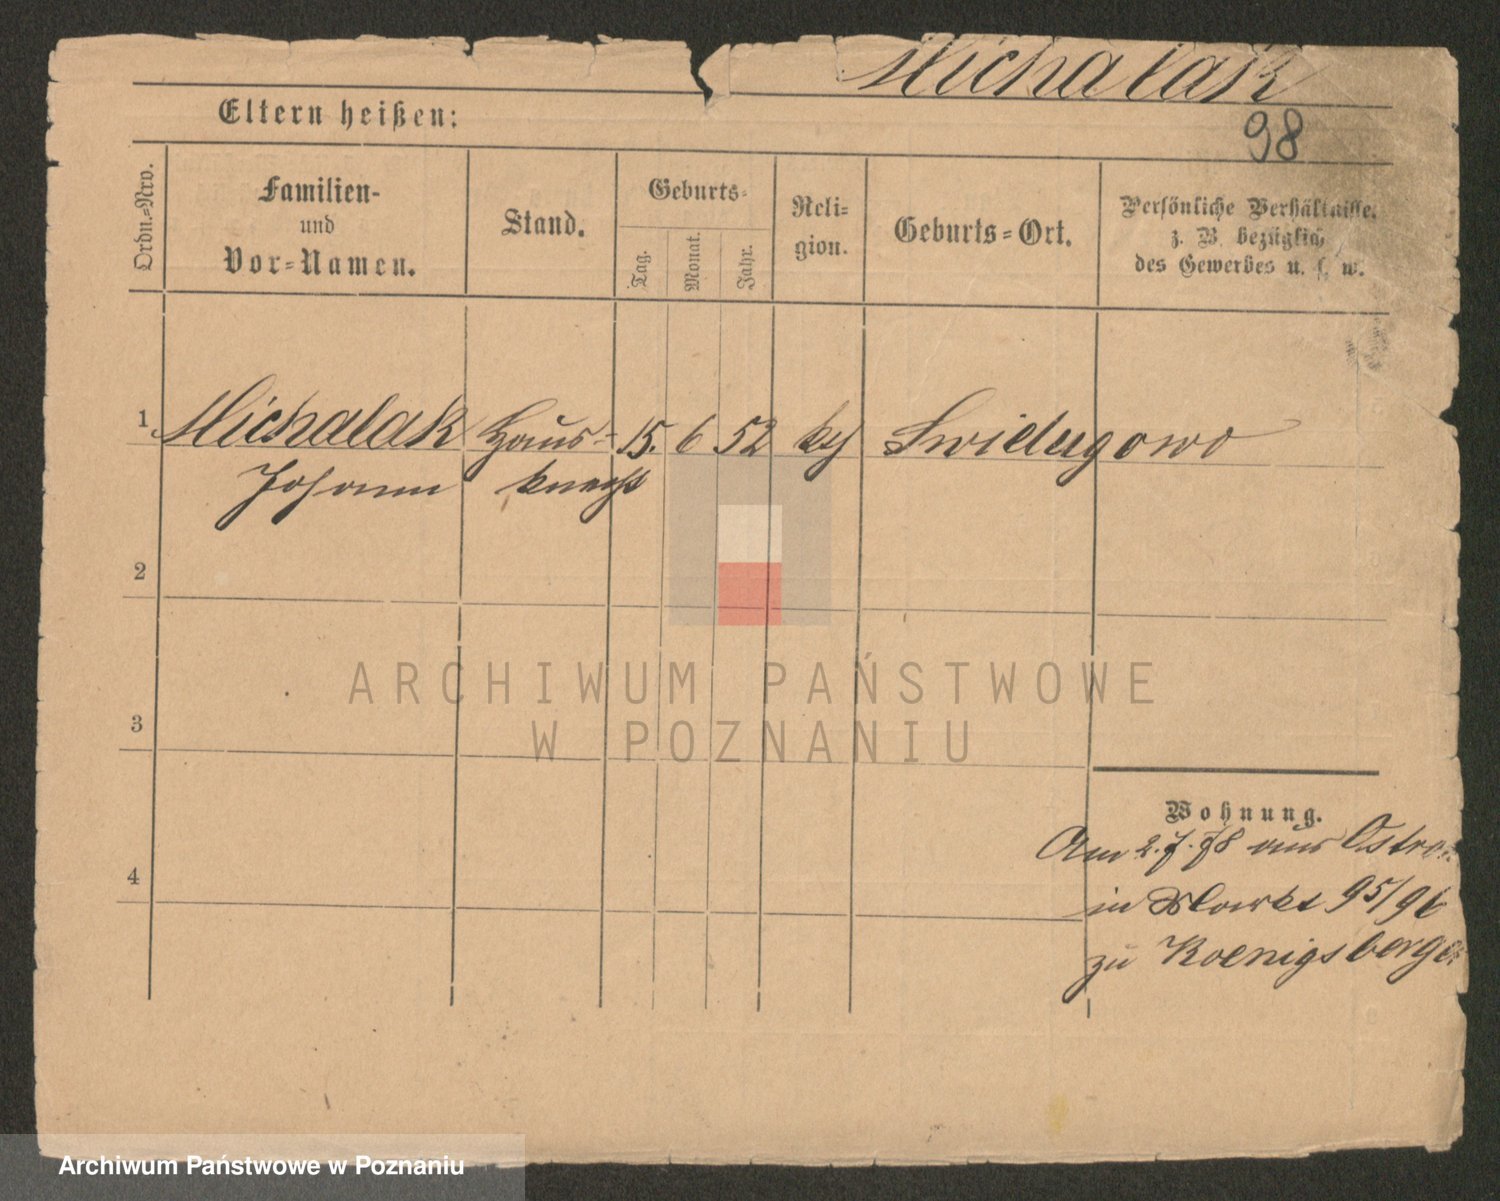 Michalak
98
Eltern heißen:
Ordn.=Nro.
Familien-
und
Vor=Namen.
Stand.
Geburts=
Tag.
Monat.
Jahr.
Reli=
gion.
Geburts=Ort.
Persönliche Verhältnisse.
z. B. bezüglich
des Gewerbes u. s. w.
1 Michalak Haus- 15. 6 52 kth Swidugowo
Johann knecht
2
3
4
ARCHIWUM PAŃSTWOWE
W POZNANIU
Wohnung.
Am 2.7.78 aus
in Markt 95/96
zu Koenigsberger
Archiwum Państwowe w Poznaniu